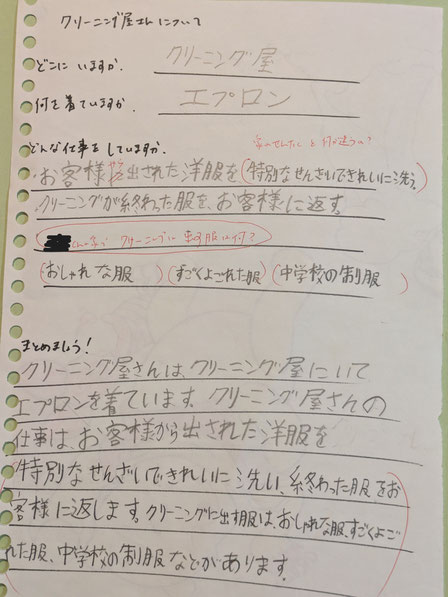 クリーニング屋さんについて
どこにいますか. クリーニング屋
何を着ていますか. エプロン
どんな仕事をしていますか.
家のせんたくと何が違うの?
お客様から出された洋服を(特別なせんざいできれいに洗う。
クリーニングが終わった服を、お客様に返す。
クリーニングに出す服は何?
(おしゃれな服) (すごくよごれた服) (中学校の制服)
まとめましょう!
クリーニング屋さんは、クリーニング屋にいて
エプロンを着ています。クリーニング屋さんの
仕事は、お客様から出された洋服を
特別なせんざいできれいに洗い、終わった服をお
客様に返します。クリーニングに出す服は、おしゃれな服、すごくよご
れた服、中学校の制服などがあります。